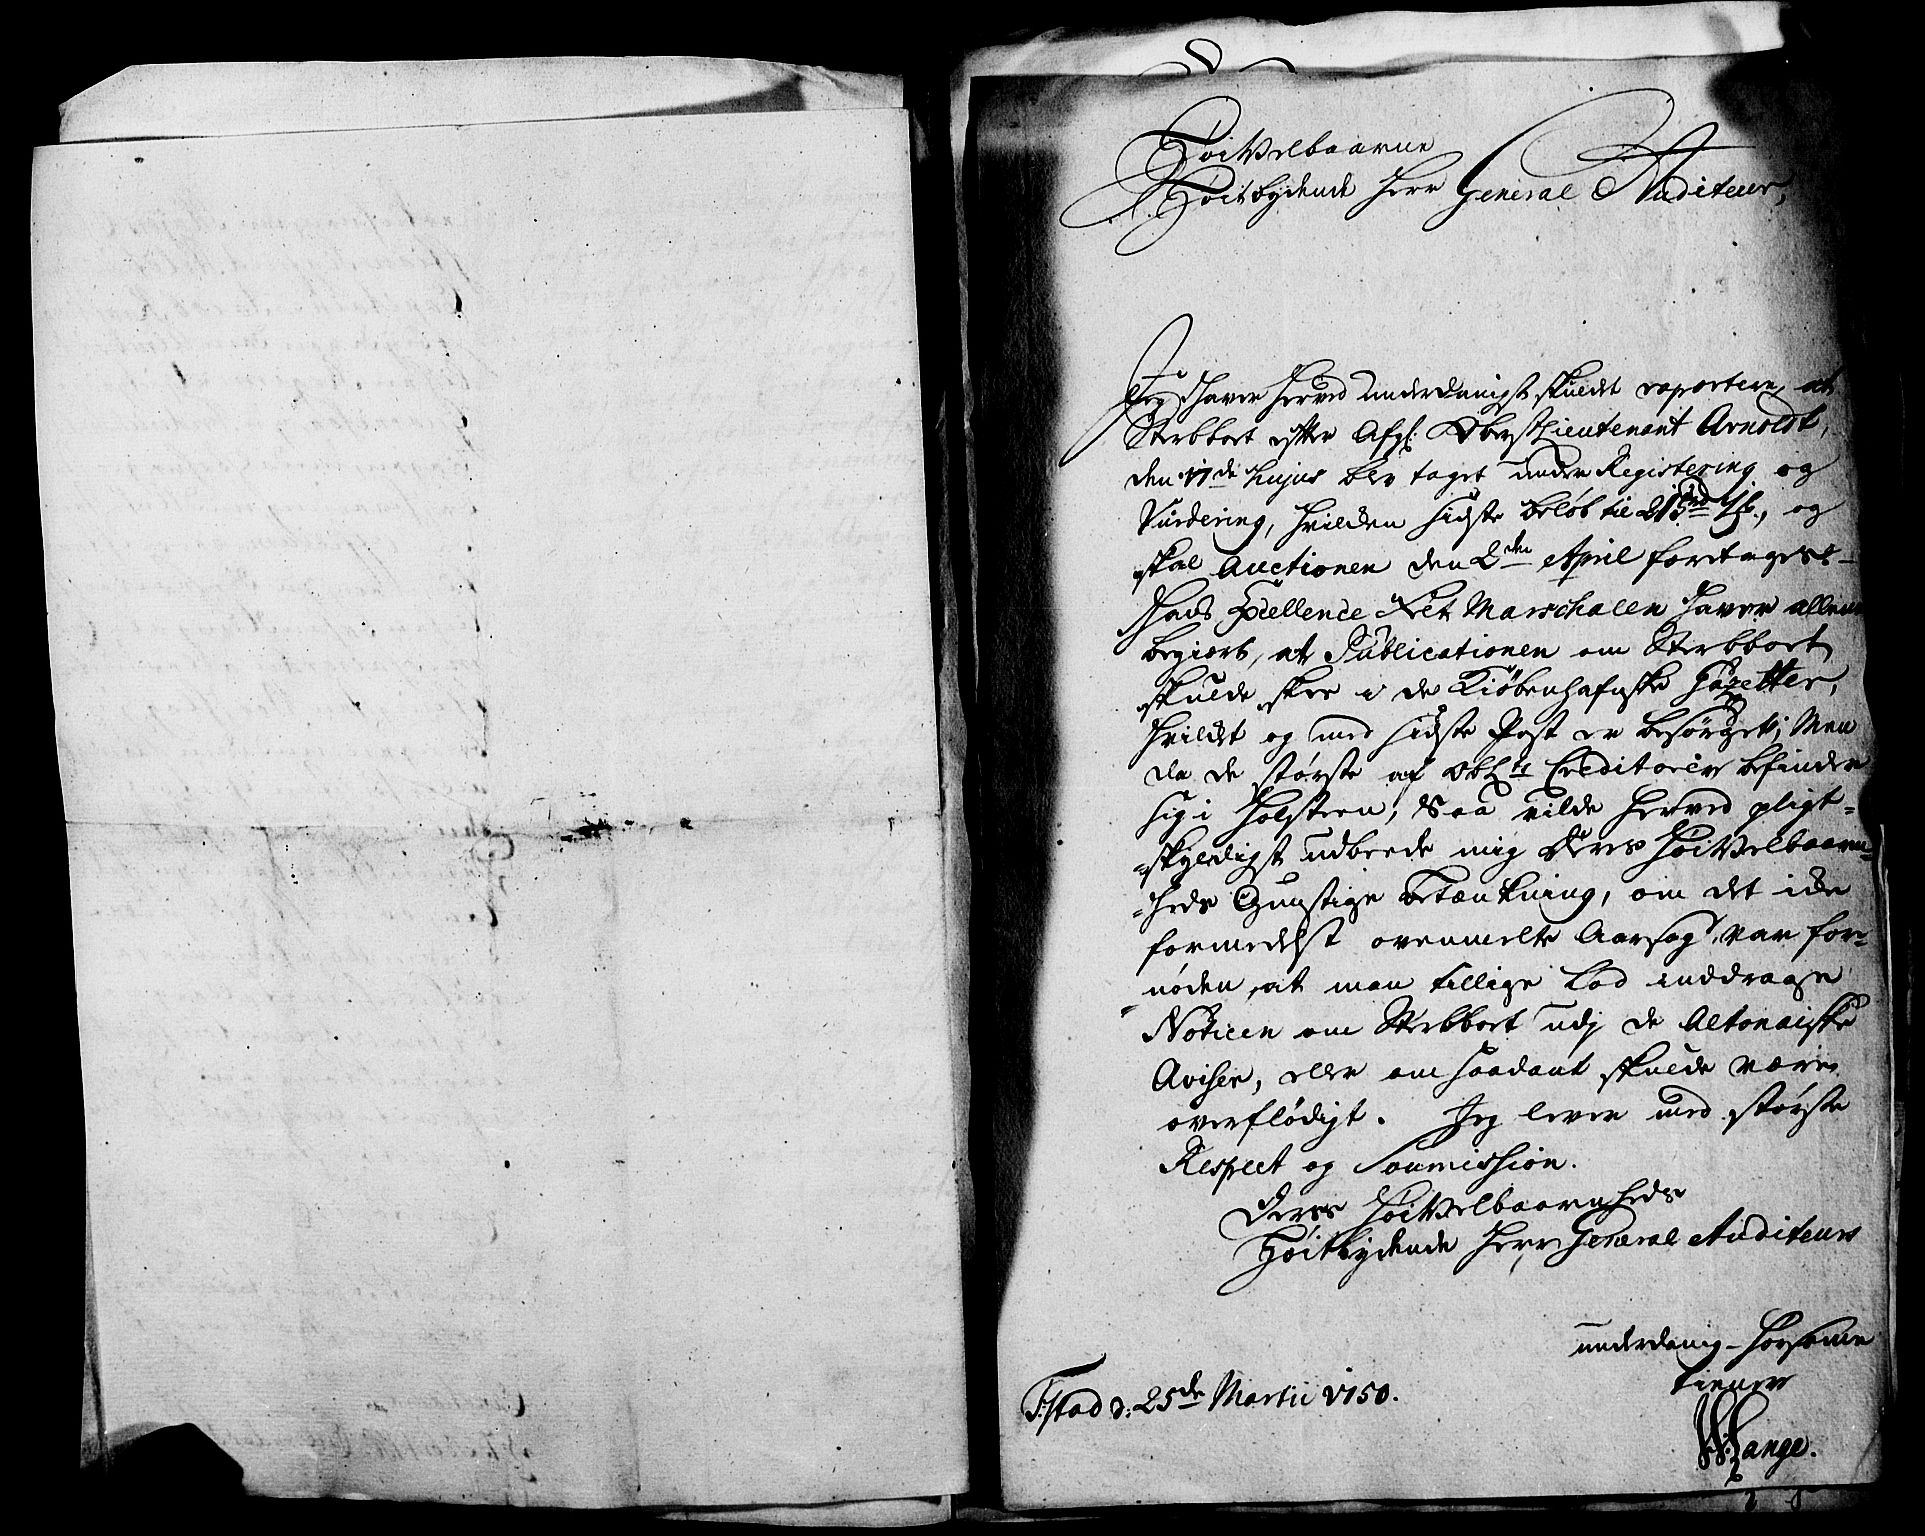 HöiVelbaarne
Höitbydende Herr General Auditeur,
Jeg Haver herved underdanigst skuldet raportere, at
Sterboet efter Afg: ObersLieutenant Arnoldt,
den 17de hujus blev taget under Registering og
Vurdering, hvilken sidste beløb til og
skal Auctionen den 2den April foretages.
Hans Excellence Felt Marschalen haver allene
begiert, at Publicationen om Sterboet
skulde skee i de Kiöbenhafnske Gazetter,
hvilket og med sidste Post er besörget; Men
da de störste af Creditorer befinder
sig i Holsteen, Saa vilde herved pligt=
=skyldigst udbeede mig Deres HöiVelbaarn=
=heds Gunstige betænkning, om det icke
formedelst ovenmelte Aarsag var for=
nöden, at man tillige lod inddrage
Noticen om Sterboet udj de Altonaiske
Aviser, eller om saadant skulde være
overflödigt. Jeg lever med störste
Respect og Soumission.
Deres HöiVelbaarnheds
Höitbydende Herr General Auditeurs
underdanig-hörsamme
tiener
Fstad d: 25de Martii 1750.
Lange.